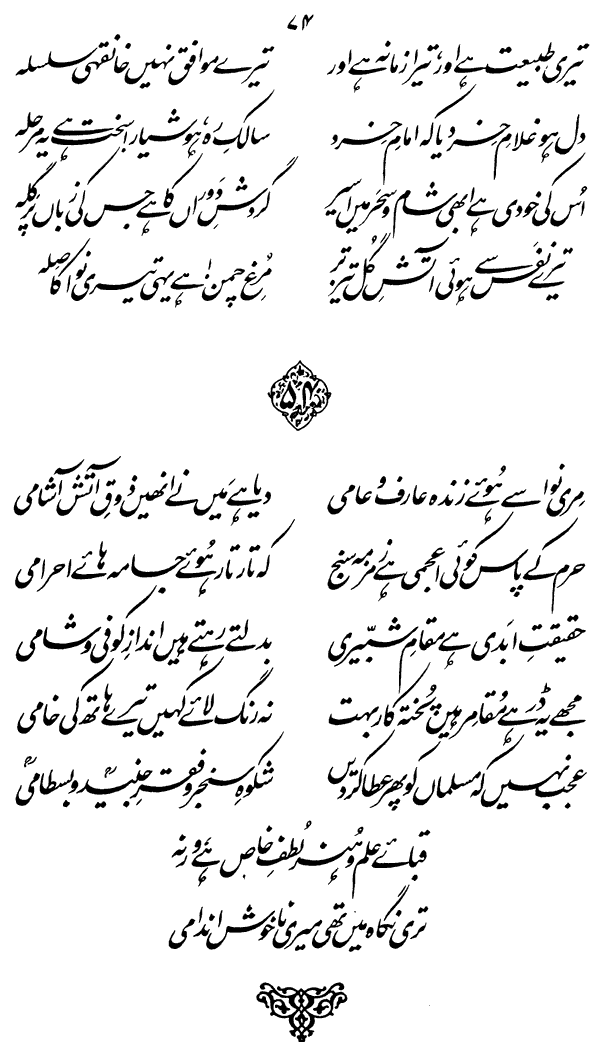 ۷۴
تیری طبیعت ہے اور، تیرا زمانہ ہے اور تیرے موافق نہیں خانقہی سلسلہ
دل ہو غلامِ خرد یا کہ امامِ خرد سالکِ رہ، ہوشیار! سخت ہے یہ مرحلہ
اُس کی خودی ہے ابھی شام و سحر میں اسیر گردشِ دَوراں کا ہے جس کی زباں پر گِلہ
تیرے نفَس سے ہوئی آتشِ گُل تیز تر مُرغِ چمن! ہے یہی تیری نوا کا صلہ
۵۴
مِری نوا سے ہُوئے زندہ عارف و عامی دیا ہے مَیں نے انھیں ذوقِ آتش آشامی
حرم کے پاس کوئی اعجمی ہے زمزمہ سنج کہ تار تار ہُوئے جامہ ہائے احرامی
حقیقتِ ابَدی ہے مقامِ شبّیری بدلتے رہتے ہیں اندازِ کوفی و شامی
مجھے یہ ڈر ہے مُقامِر ہیں پُختہ کار بہت نہ رنگ لائے کہیں تیرے ہاتھ کی خامی
عجب نہیں کہ مسلماں کو پھر عطا کر دیں شکوہِ سنجر و فقرِ جنیدؒ و بسطامیؒ
قبائے علم و ہُنر لُطفِ خاص ہے، ورنہ
تری نگاہ میں تھی میری ناخوش اندامی